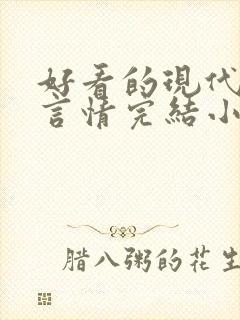 好看的現代
言情完結小
腊八粥的花生